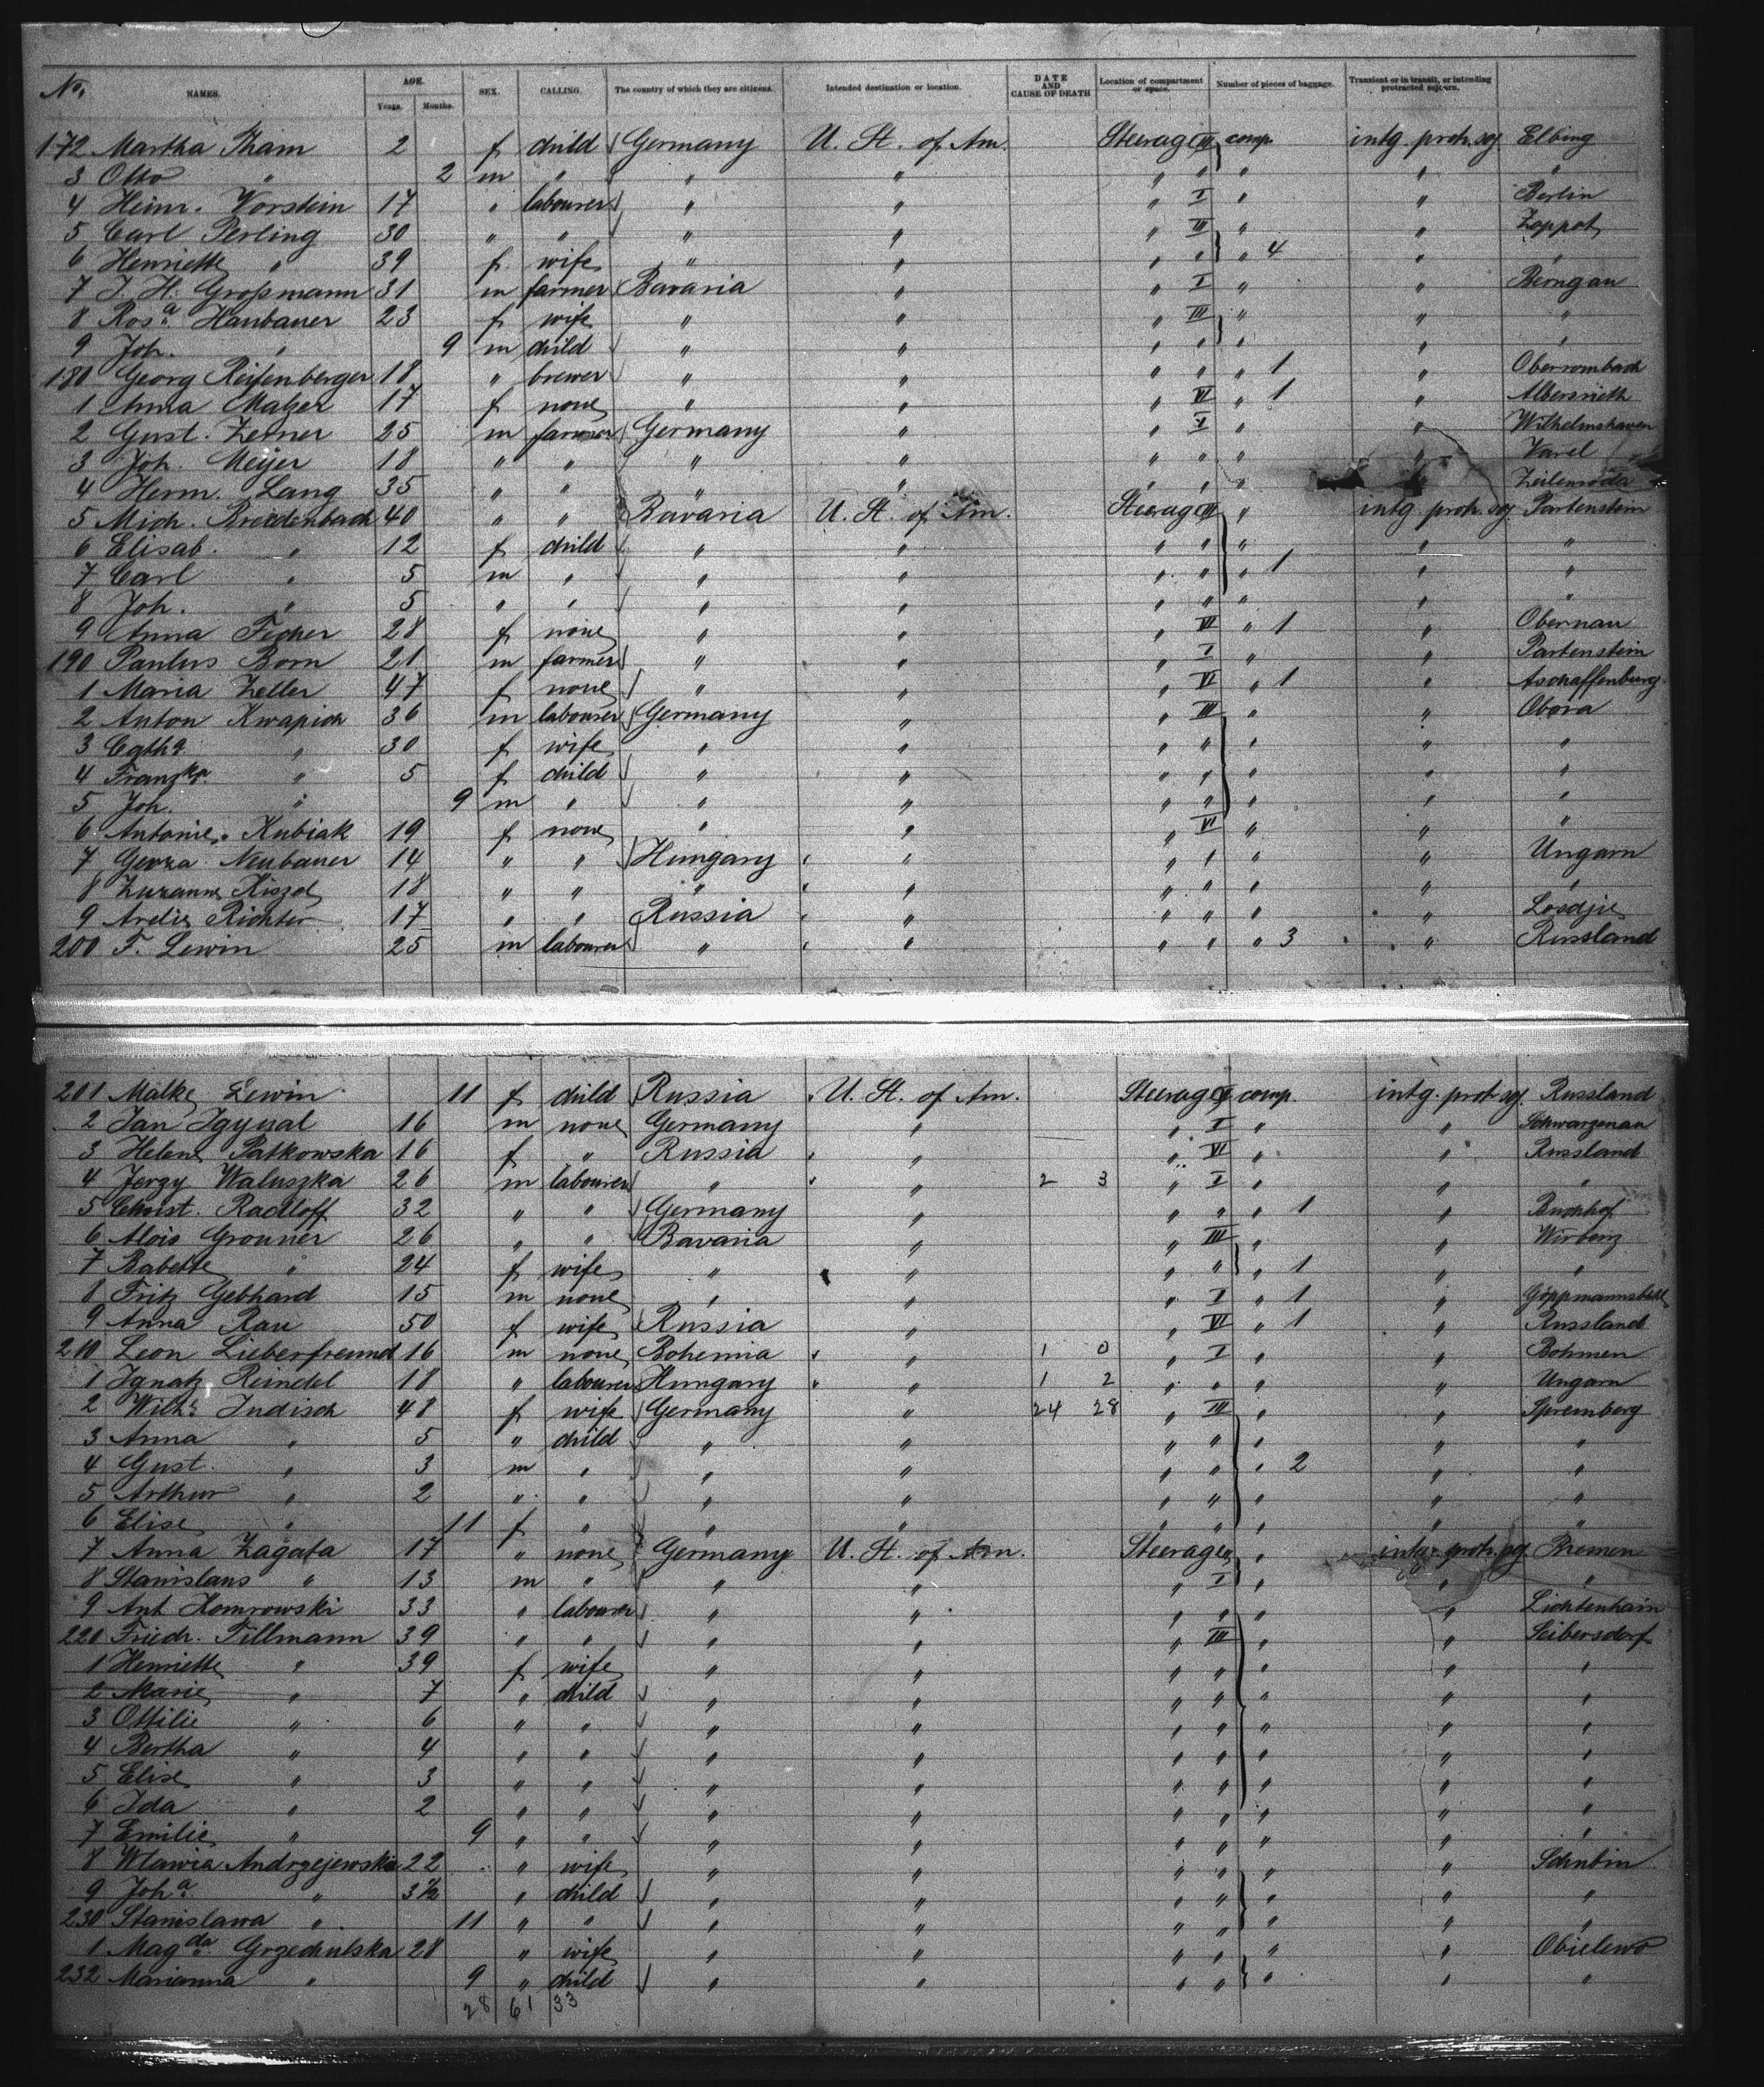 No. NAMES. AGE. Years. Months. SEX. CALLING. The country of which they are citizens. Intended destination or location. DATE AND CAUSE OF DEATH Location of compartment or space. Number of pieces of baggage. Transient or in transit, or intending protracted sojourn.
172 Martha Tham 2 f child Germany U. St. of Am. Steerage III comp. intg protr. soj Elbing
3 Otto " 2 m " " " " " " " "
4 Heinr. Vorstein 17 " labourer " " " I " " Berlin
5 Carl Perling 30 " " " " " III " " Zoppot
6 Henriette " 39 f wife " " " " " 4 " "
7 J. H. Großmann 31 m farmer Bavaria " " I " " Berngau
8 Rosa Haubauer 23 f wife " " " III " " "
9 Joh. " 9 m child " " " " " " "
180 Georg Reifenberger 18 " brewer " " " " " 1 " Oberrombach
1 Anna Malzer 17 f none " " " VI " 1 " Albersrieth
2 Gust. Zerner 25 m farmer Germany " " I " " Wilhelmshaven
3 Joh. Meijer 18 " " " " " " " " Varel
4 Herm. Lang 35 " " " " " " " Zeilenroda
5 Mich. Breidenbach 40 " " Bavaria U. St. of Am. Steerage III " intg protr. soj Partenstein
6 Elisab. " 12 f child " " " " " " "
7 Carl " 5 m " " " " " " 1 " "
8 Joh. " 5 " " " " " " " " "
9 Anna Fecher 28 f none " " " VI " 1 " Obernau
190 Paulus Born 21 m farmer " " " I " " Partenstein
1 Maria Zeller 47 f none " " " VI " 1 " Aschaffenburg
2 Anton Kwapich 36 m labourer Germany " " III " " Obora
3 Catha " 30 f wife " " " " " " "
4 Franzka " 5 f child " " " " " " "
5 Joh. " 9 m " " " " " " " "
6 Antonie Kubiak 19 f none " " " VI " " "
7 Neubauer 14 " " Hungary " " " " " Ungarn
8 Zuzanne Kiszel 18 " " " " " " " " "
9 Arelie Richter 17 " " Russia " " " " " Losdjie
200 F. Lewin 25 m labourer " " " " " 3 " Russland
201 Malke Lewin 11 f child Russia U. St. of Am. Steerage comp. intg. protr soj. Russland
2 Jan Igynal 16 m none Germany " " I " " Schwarzenau
3 Helene Patkowska 16 f " Russia " " VI " " Russland
4 Jerzy Waluszka 26 m labourer " " 2 3 " I " " "
5 Christ. Radloff 32 " " Germany " " " " 1 " Buchhof
6 Alois Grouner 26 " " Bavaria " " III " " Wirbenz
7 Babette " 24 f wife " " " " " 1 " "
8 Fritz Gebhard 15 m none " " " I " 1 " Göppmannsbühl
9 Anna Rau 50 f wife Russia " " VI " 1 " Russland
210 Leon Lieberfreund 16 m none Bohemia " 1 0 " I " " Böhmen
1 Ignatz Reindel 18 " labourer Hungary " 1 2 " " " " Ungarn
2 Wilh. Indisch 48 f wife Germany " 24 28 " III " " Spremberg
3 Anna " 5 " child " " " " " " "
4 Gust. " 3 m " " " " " " 2 " "
5 Arthur " 2 " " " " " " " " "
6 Elise " 11 f " " " " " " " "
7 Anna Zagata 17 " none Germany U. St. of Am. Steerage " intg. protr. soj Bremen
8 Stanislaus " 13 m " " " " I " " "
9 Ant Komrowski 33 " labourer " " " " " " Lichtenhain
220 Friedr. Tillmann 39 " " " " " III " " Seibersdorf
1 Henriette " 39 f wife " " " " " " "
2 Marie " 7 " child " " " " " " "
3 Ottilie " 6 " " " " " " " " "
4 Bertha " 4 " " " " " " " " "
5 Elise " 3 " " " " " " " " "
6 Ida " 2 " " " " " " " " "
7 Emilie " 9 " " " " " " " " "
8 Wlawia Andrzejewska 22 " wife " " " " " " Schubin
9 Joha " 3½ " child " " " " " " "
230 Stanislawa " 11 " " " " " " " " "
1 Magda Grzechulska 28 " wife " " " " " " Obielewo
232 Marianna " 9 " child " " " " " " "
28 61 33